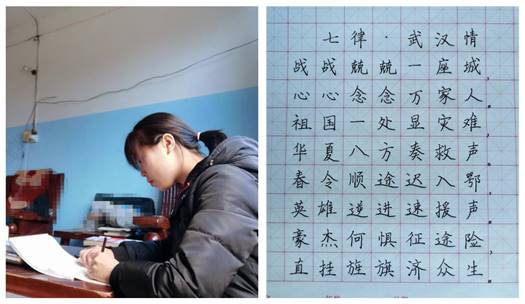 七律·武汉情
战战兢兢一座城，
心心念念万家人。
祖国一处显灾难，
华夏八方奏救声。
春令顺途迟入鄂，
英雄逆进速援声。
豪杰何惧征途险，
直挂旌旗济众生。